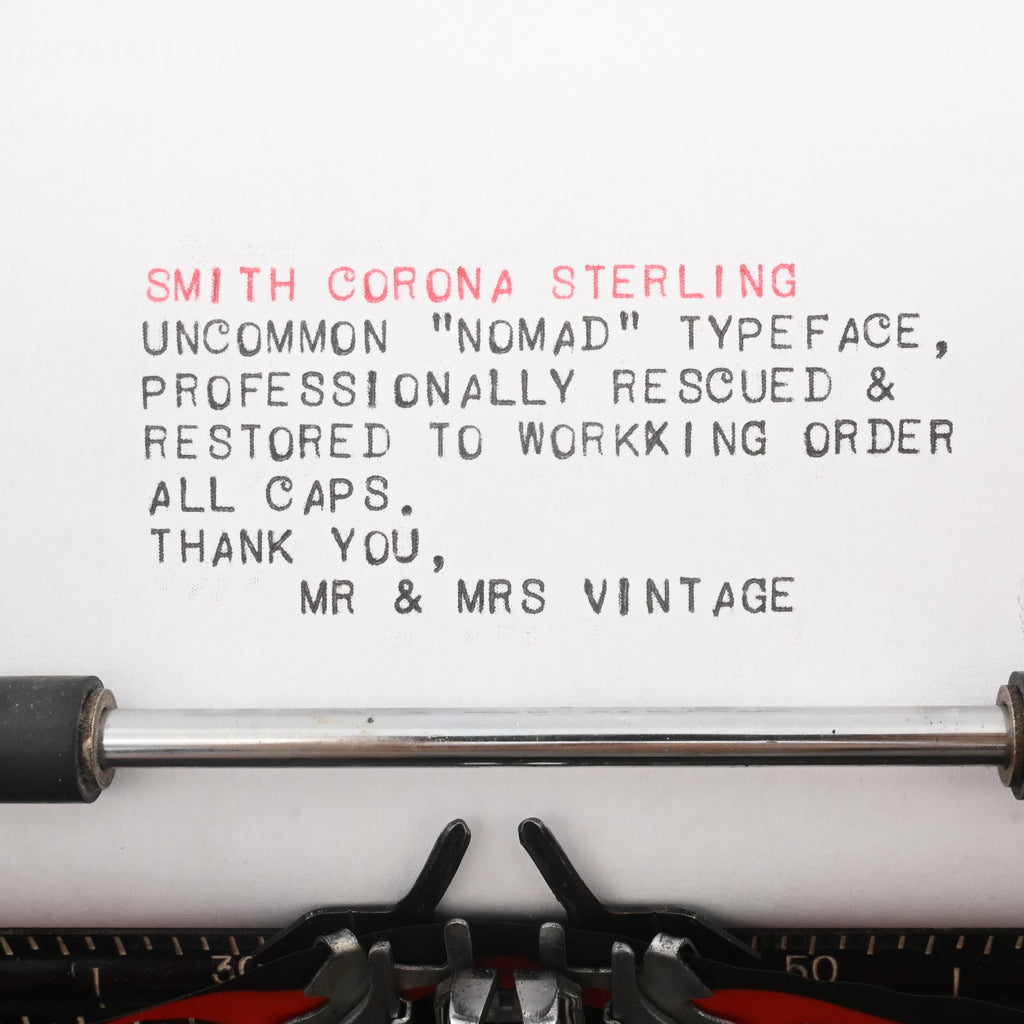 SMITH CORONA STERLING
UNCOMMON "NOMAD" TYPEFACE,
PROFESSIONALLY RESCUED &
RESTORED TO WORKXING ORDER
ALL CAPS.
THANK YOU,
MR & MRS VINTAGE
30
50